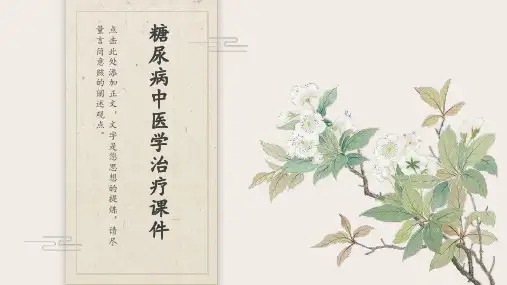 糖尿病中医学治疗课件
点击此处添加正文，文字是您思想的提炼，请尽
量言简意赅的阐述观点。